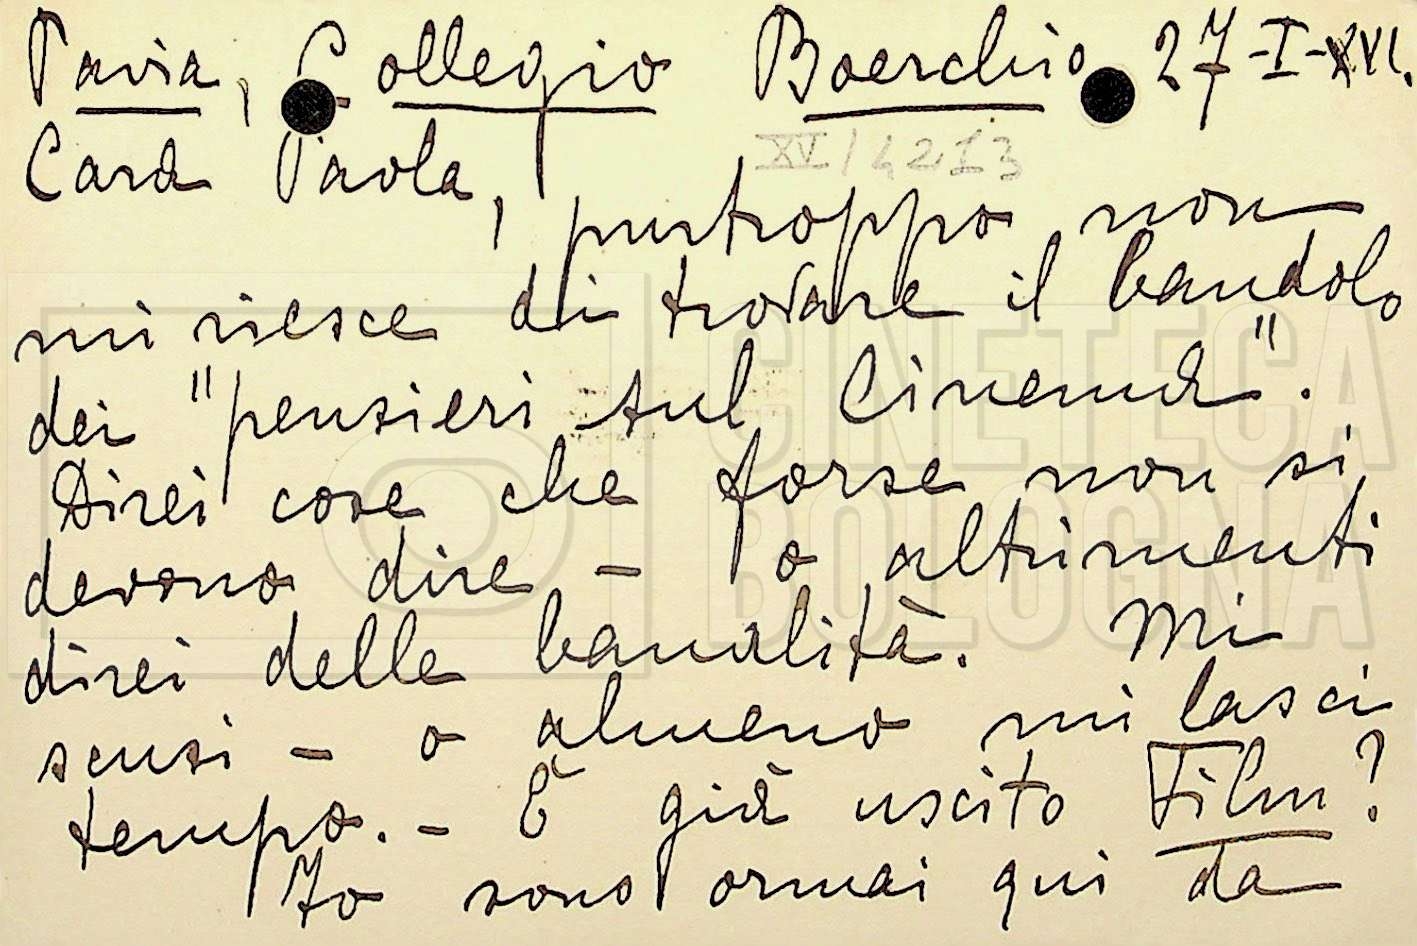 Pavia, Collegio Boerchio 27-I-XVI.
XV/4213
Cara Paola,
purtroppo non
mi riesce di trovare il bandolo
dei "pensieri sul Cinema".
Direi cose che forse non si
devono dire - o altrimenti
direi delle banalità. Mi
scusi - o almeno mi lasci
tempo. - È già uscito Film?
Io sono ormai qui da
CINETECA
BOLOGNA